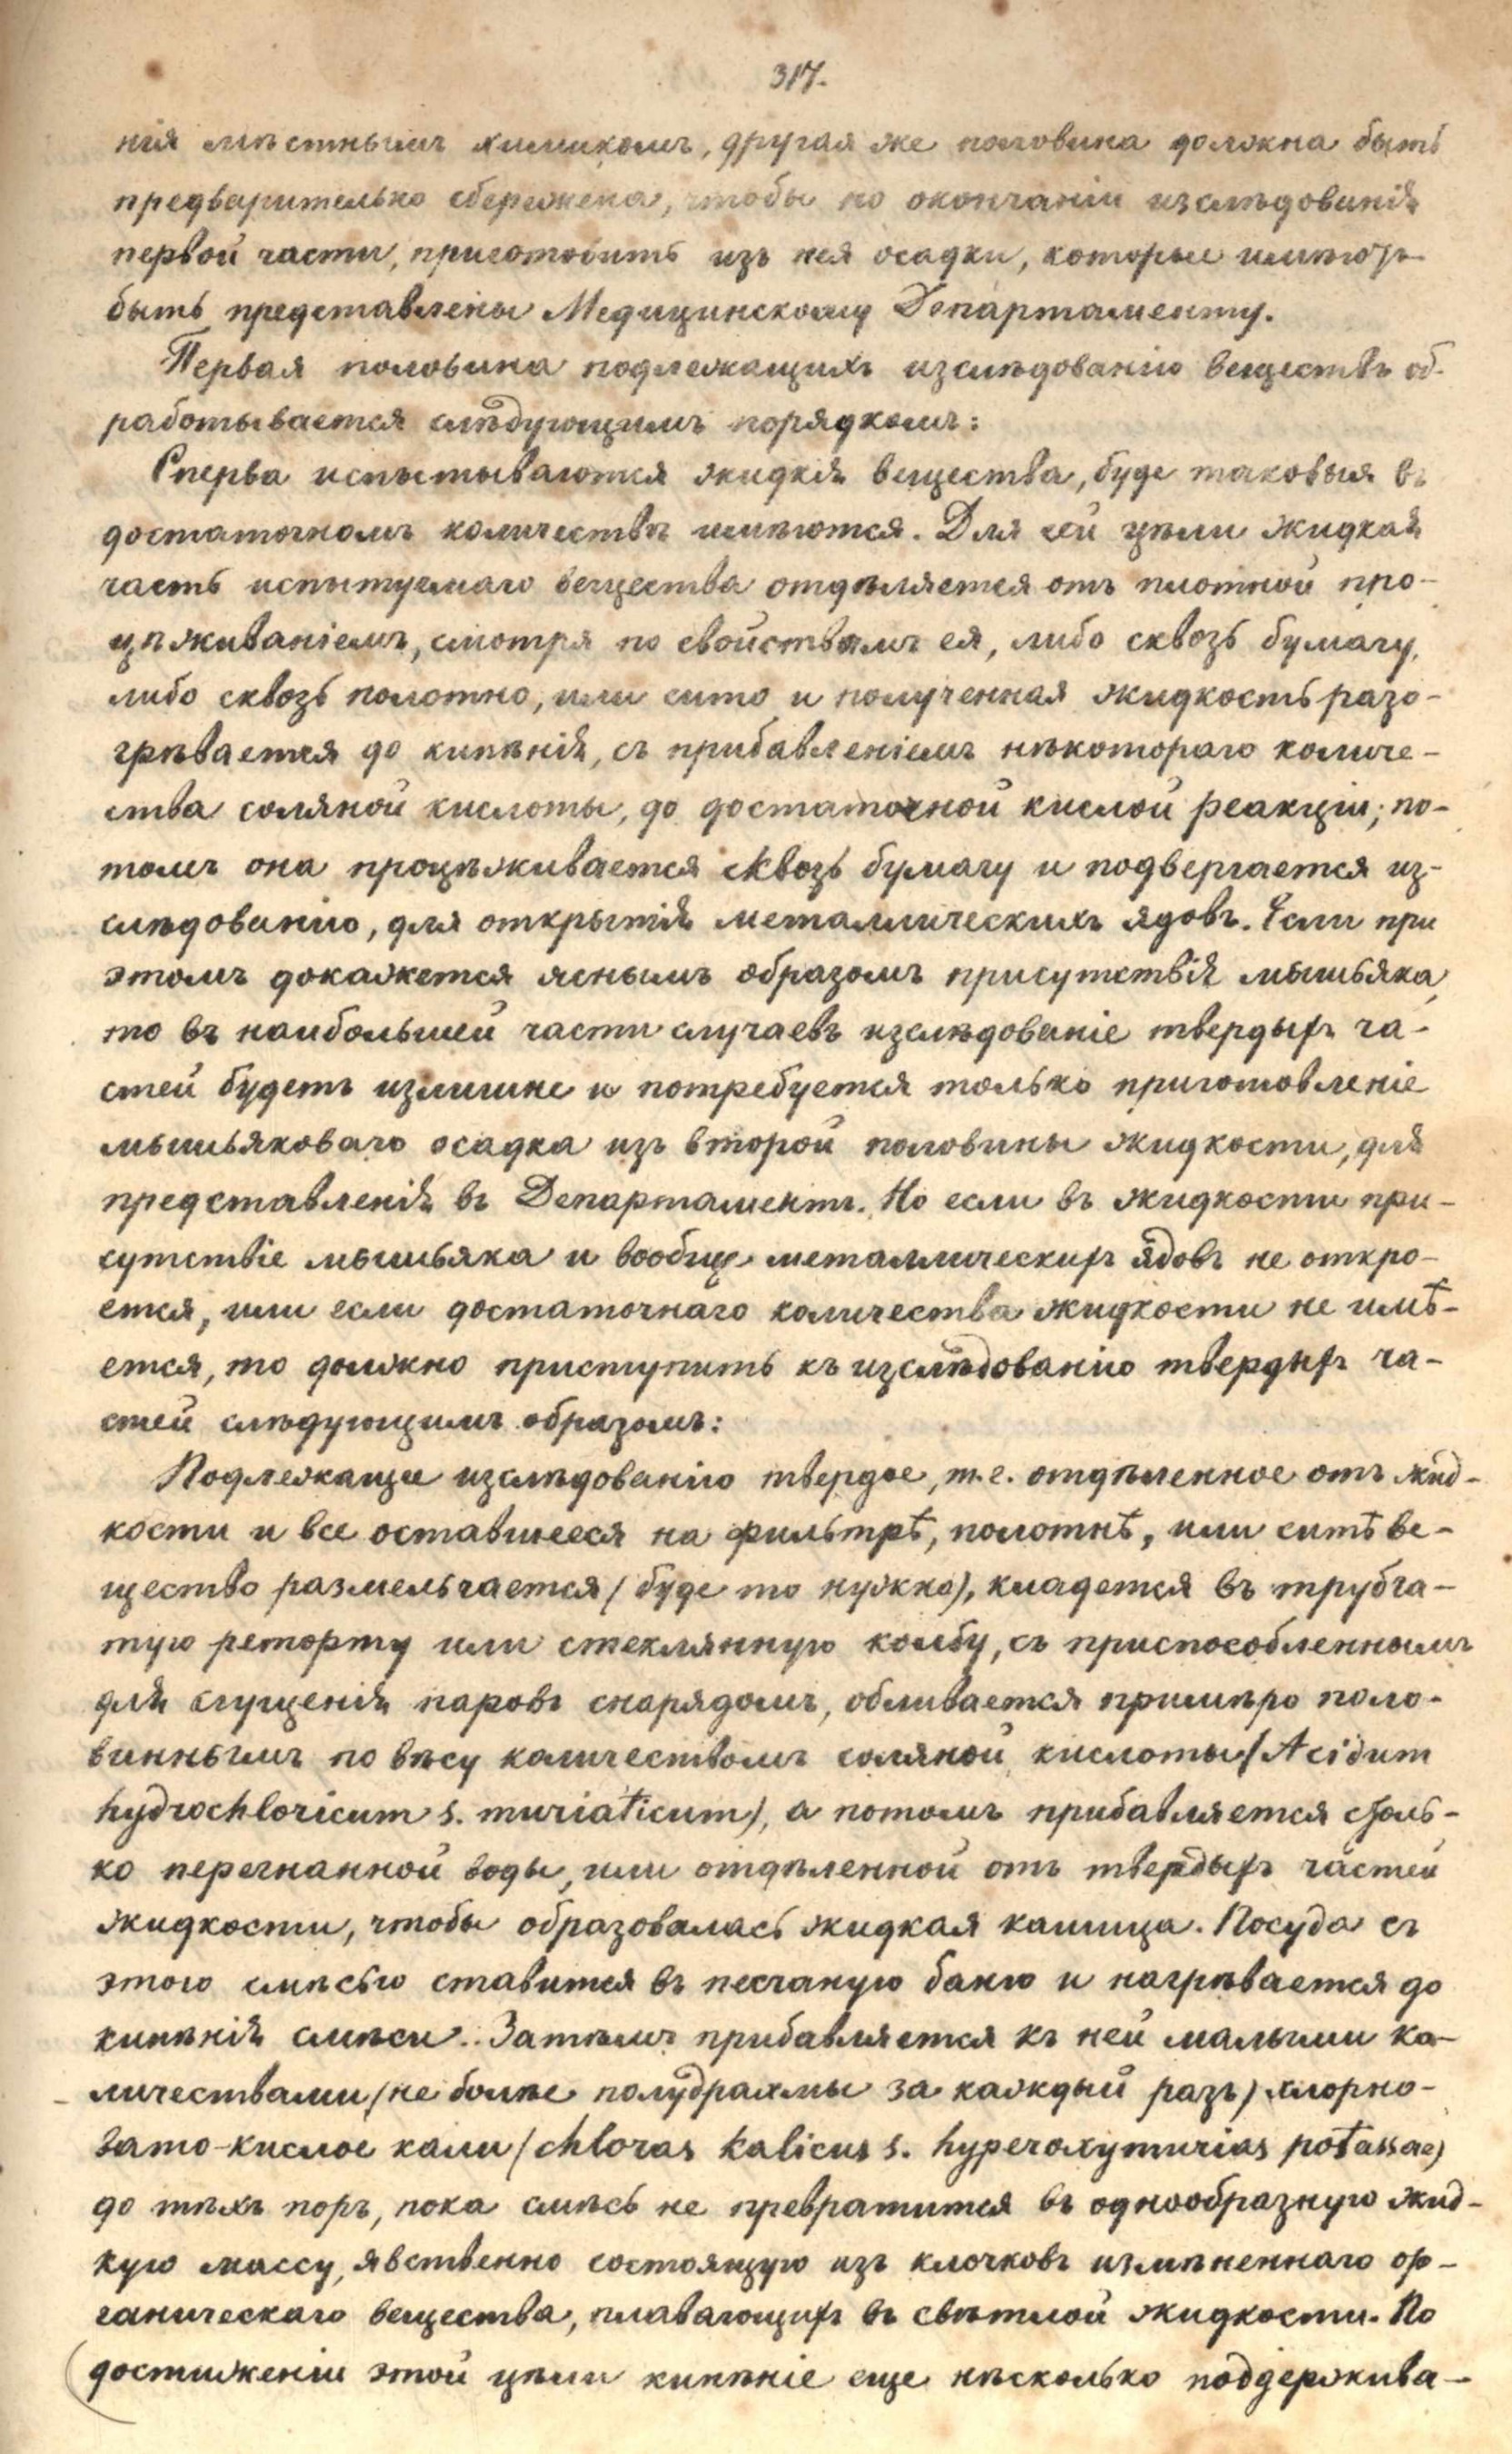 317.
нія мѣстнымъ химикомъ, другая же половина должна быть
предварительно сбережена, чтобы по окончаніи изслѣдованія
первой части, приготовить изъ нея осадки, которые имѣютъ
быть представлены Медицинскому Департаменту.
Первая половина подлежащихъ изслѣдованію веществъ об-
работывается слѣдующимъ порядкомъ:
Сперва испытываются жидкія вещества, буде таковыя въ
достаточномъ количествѣ имѣются. Для сей цѣли жидкая
часть испытуемаго вещества отдѣляется отъ плотной про-
цѣживаніемъ, смотря по свойствамъ ея, либо сквозь бумагу,
либо сквозь полотно, или сито и полученная жидкость разо-
грѣвается до кипѣнія, съ прибавленіемъ нѣкотораго количе-
ства соляной кислоты, до достаточной кислой реакціи; по-
томъ она процѣживается сквозь бумагу и подвергается из-
слѣдованію, для открытія металлическихъ ядовъ. Если при
этомъ докажется яснымъ образомъ присутствія мышьяка,
то въ наибольшей части случаевъ изслѣдованіе твердыхъ ча-
стей будетъ излишне и потребуется только приготовленіе
мышьяковаго осадка изъ второй половины жидкости, для
представленія въ Департаментъ. Но если въ жидкости при-
сутствіе мышьяка и вообще металлическихъ ядовъ не откро-
ется, или если достаточнаго количества жидкости не имѣ-
ется, то должно приступить къ изслѣдованію твердыхъ ча-
стей слѣдующимъ образомъ:
Подлежащее изслѣдованію твердое, т.е. отдѣленное отъ жид-
кости и все оставшееся на фильтрѣ, полотнѣ, или ситѣ ве-
щество размельчается (буде то нужно), кладется въ трубча-
тую реторту или стеклянную колбу, съ приспособленнымъ
для сгущенія паровъ снарядомъ, обливается примѣро поло-
виннымъ по вѣсу количествомъ соляной кислоты (Acidum
hydrochloricum s. muriaticum), а потомъ прибавляется столь-
ко перегнанной воды, или отдѣленной отъ твердыхъ частей
жидкости, чтобы образовалась жидкая кашица. Посуда съ
этою смѣсью ставится въ песчаную баню и нагрѣвается до
кипѣнія смѣси. Затѣмъ прибавляется къ ней малыми ко-
личествами (не болѣе полудрахмы за каждый разъ) хлорно-
вато-кислое кали (chloras kalicus s. hyperoxymurias potassae)
до тѣхъ поръ, пока смѣсь не превратится въ однообразную жид-
кую массу, явственно состоящую изъ клочковъ измѣненнаго ор-
ганическаго вещества, плавающихъ въ свѣтлой жидкости. По
достиженіи этой цѣли кипѣніе еще нѣсколько поддержива-